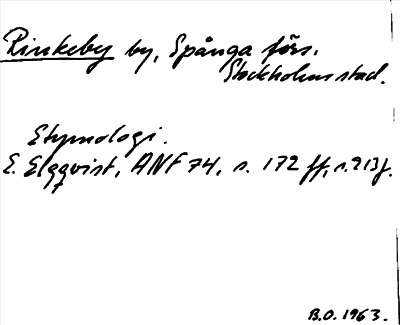 Rinkeby by, Spånga förs.
Stockholms stad.
Etymologi.
E. Elqvist, ANF 74, s. 172 ff, s. 213 f.
B.O. 1963.